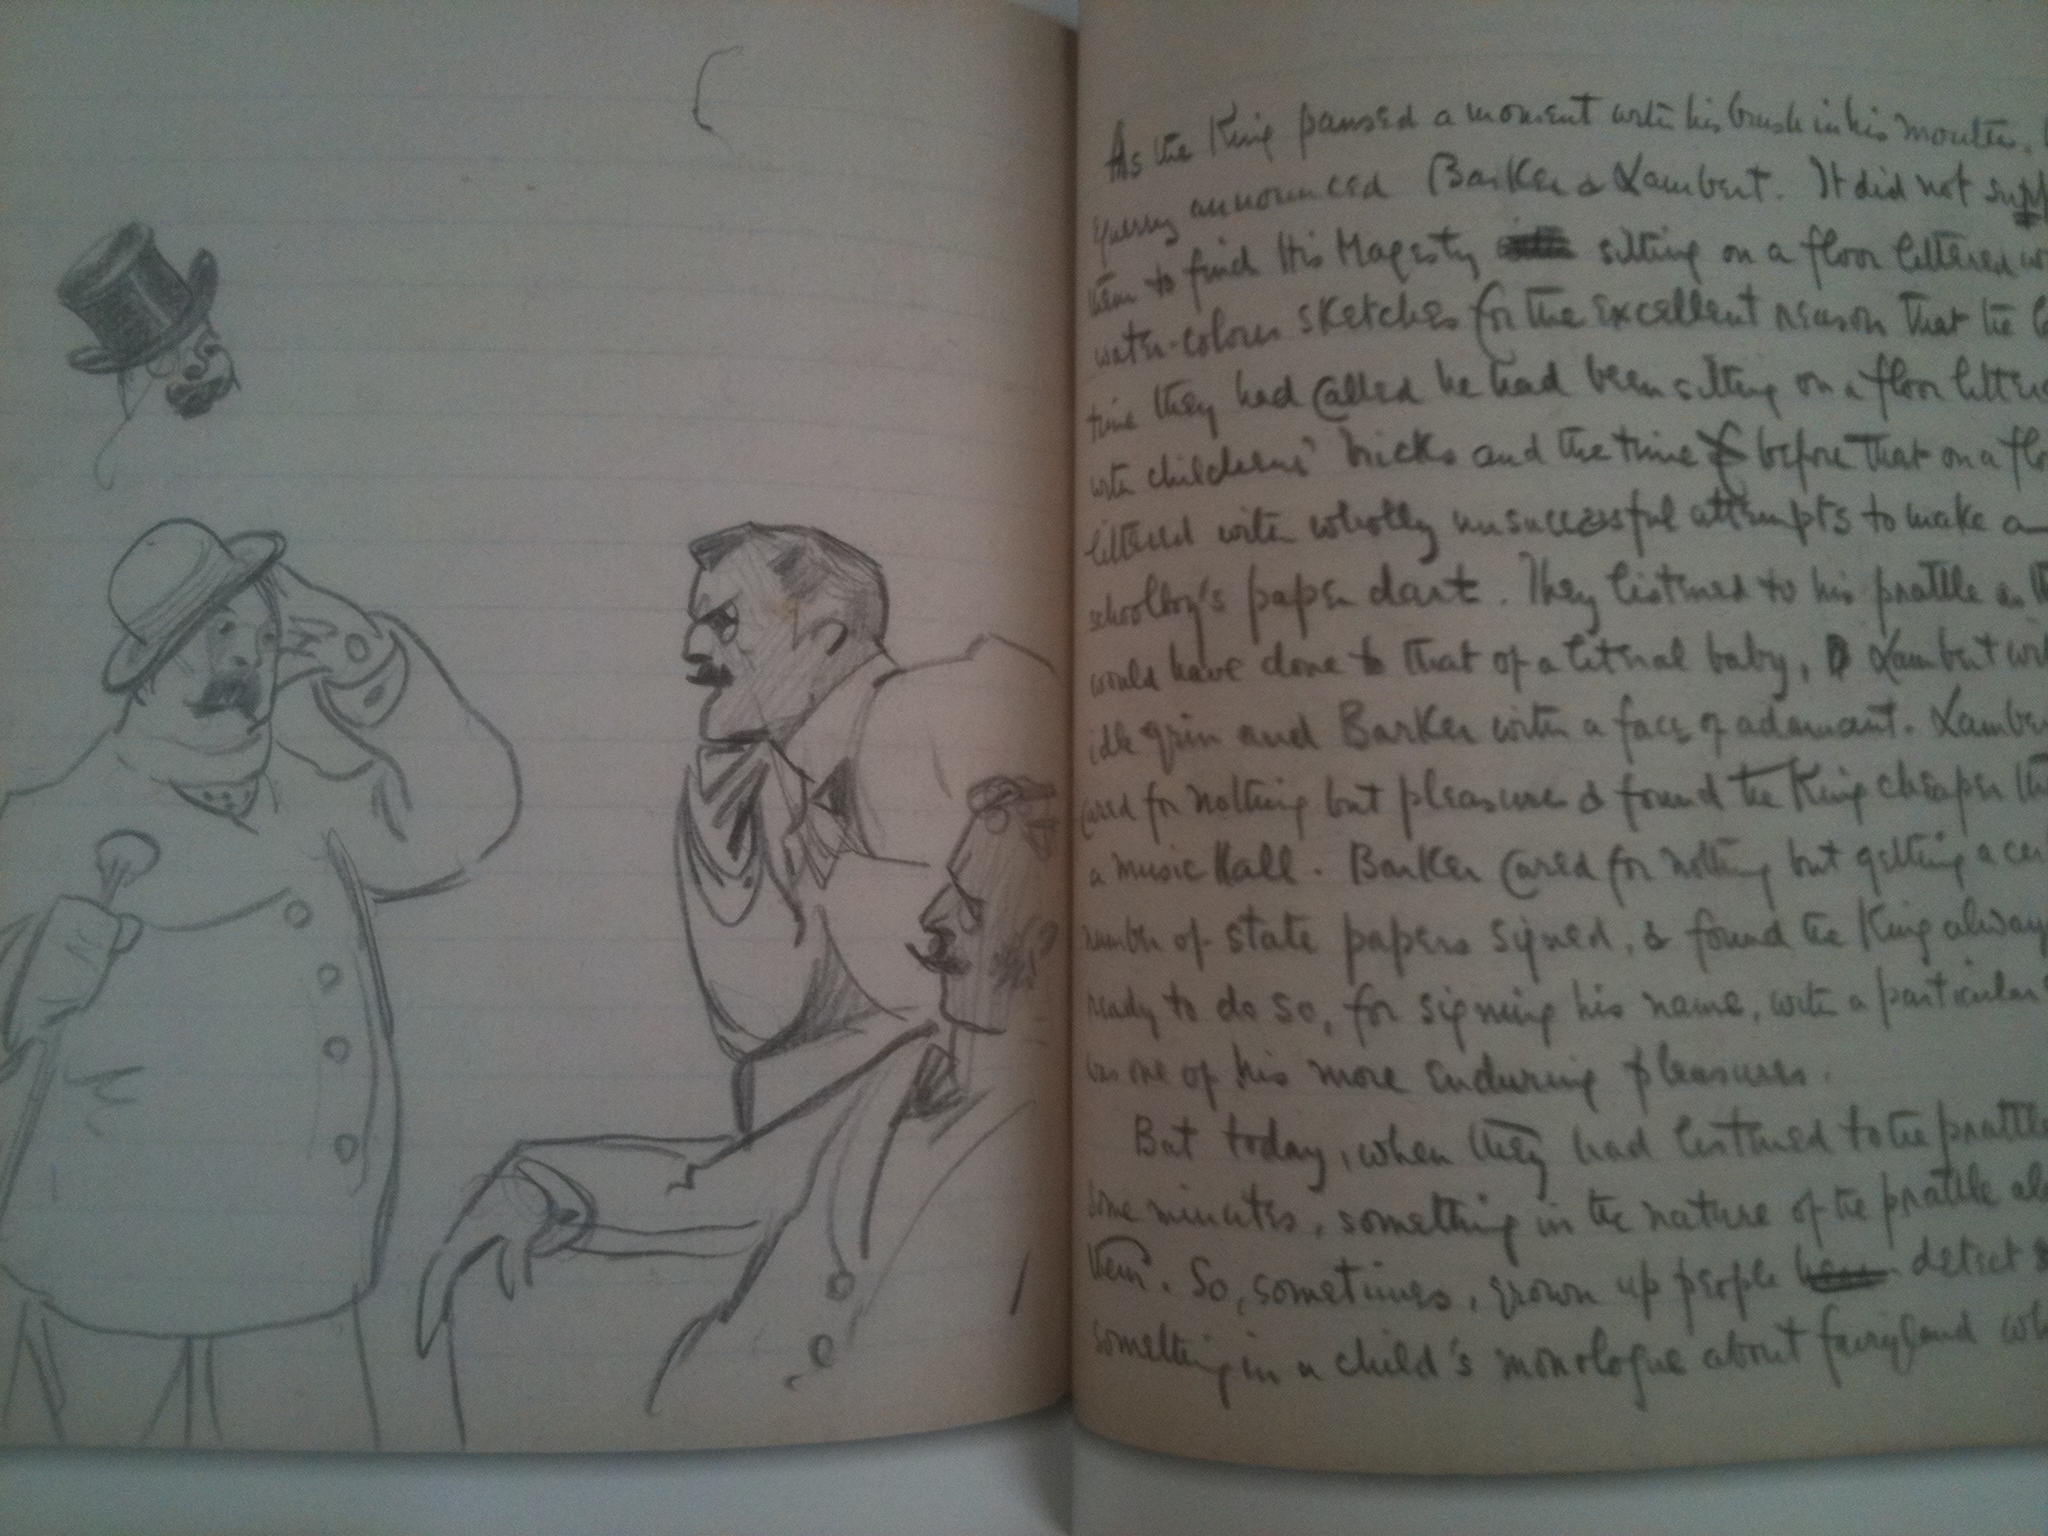 As the King paused a moment with his brush in his mouth,
querry announced Barker & Lambert. It did not
them to find His Majesty sitting on a floor littered
water-colour sketches for the excellent reason that the
time they had called he had been sitting on a floor
with childrens' bricks and the time before that on a
littered with wholly unsuccessful attempts to make a
schoolboy's paper dart. They listened to his prattle as
would have done to that of a literal baby, Lambert
idle grin and Barker with a face of adamant.
cared for nothing but pleasure & found the King cheaper
a music Hall. Barker cared for nothing but getting a
number of state papers signed, & found the King
ready to do so, for signing his name, with a particular
was one of his more enduring pleasures.
But today, when they had listened to the prattle
some minutes, something in the nature of the prattle
them. So, sometimes, grown up people detect
something in a child's monologue about fairyland